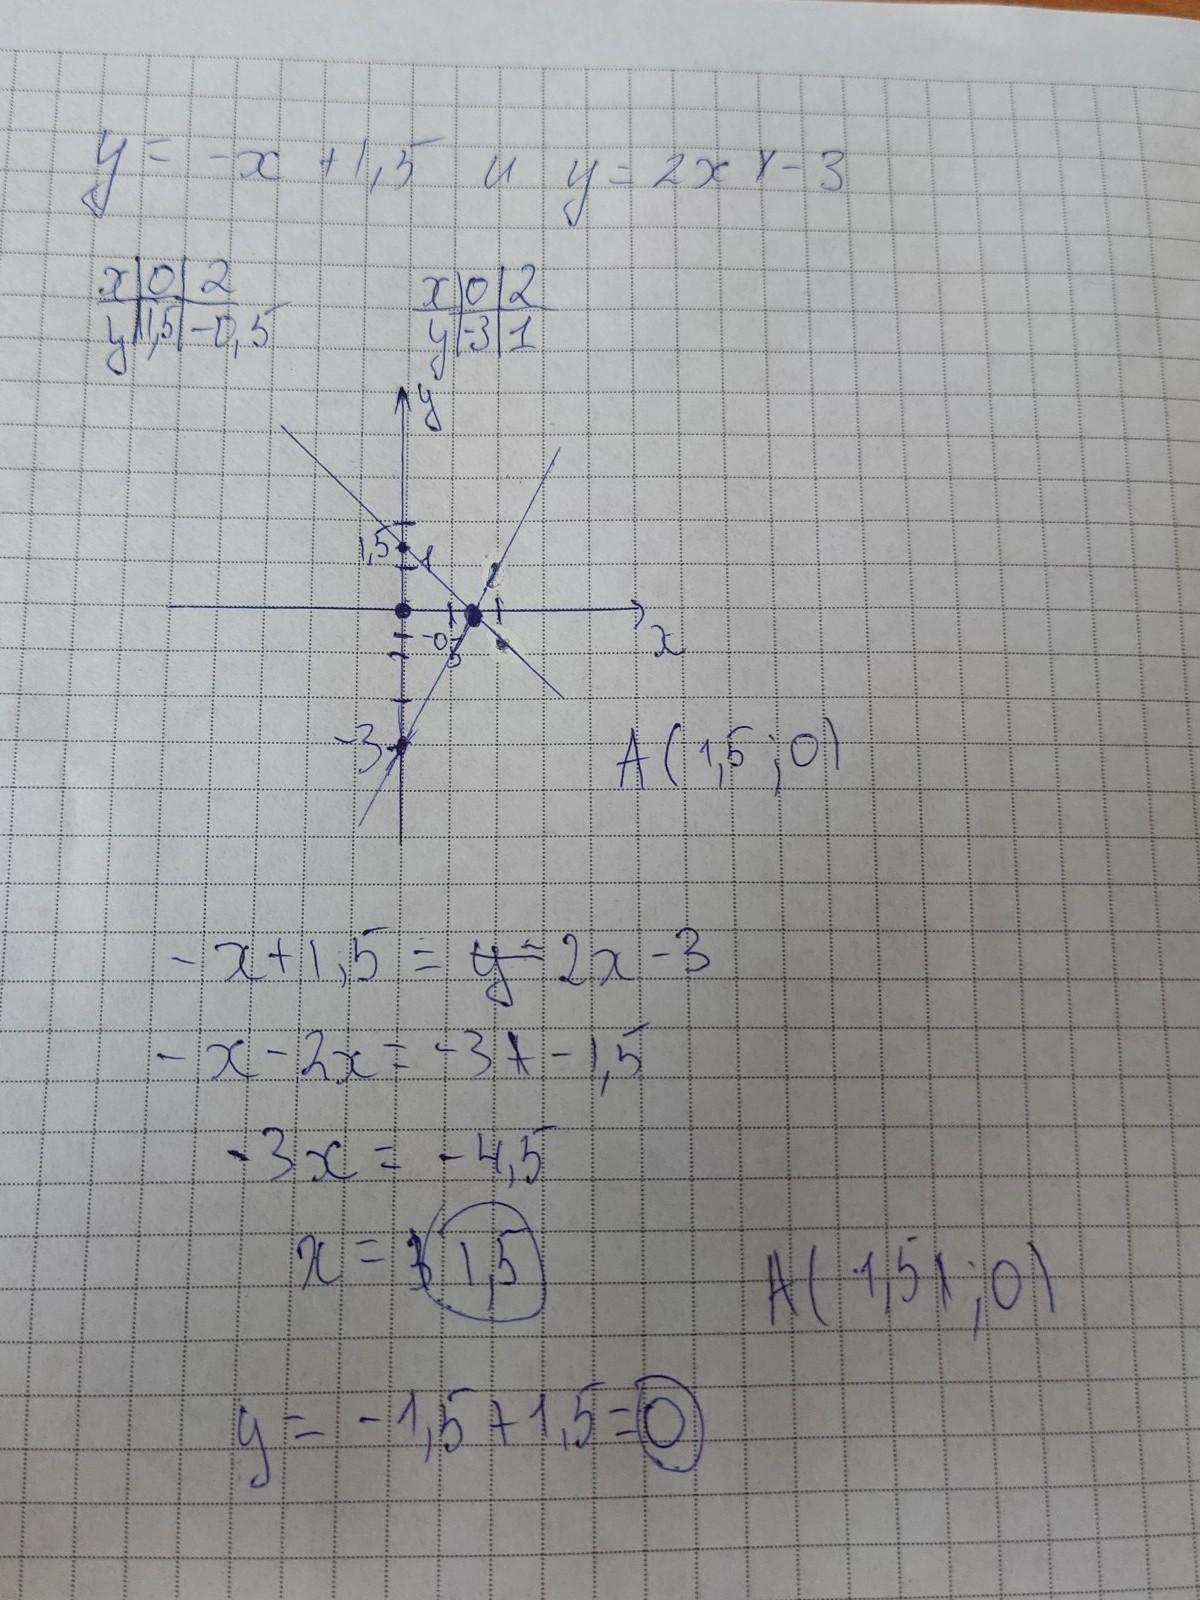 y = -x + 1,5 и y = 2x - 3
x 0 2
y 1,5 -0,5
x 0 2
y -3 1
y
1,5
1
-0,5
x
-3
A(1,5;0)
-x+1,5 = y = 2x-3
-x-2x = -3 -1,5
-3x = -4,5
x = 1,5
A(1,5;0)
y = -1,5+1,5=0